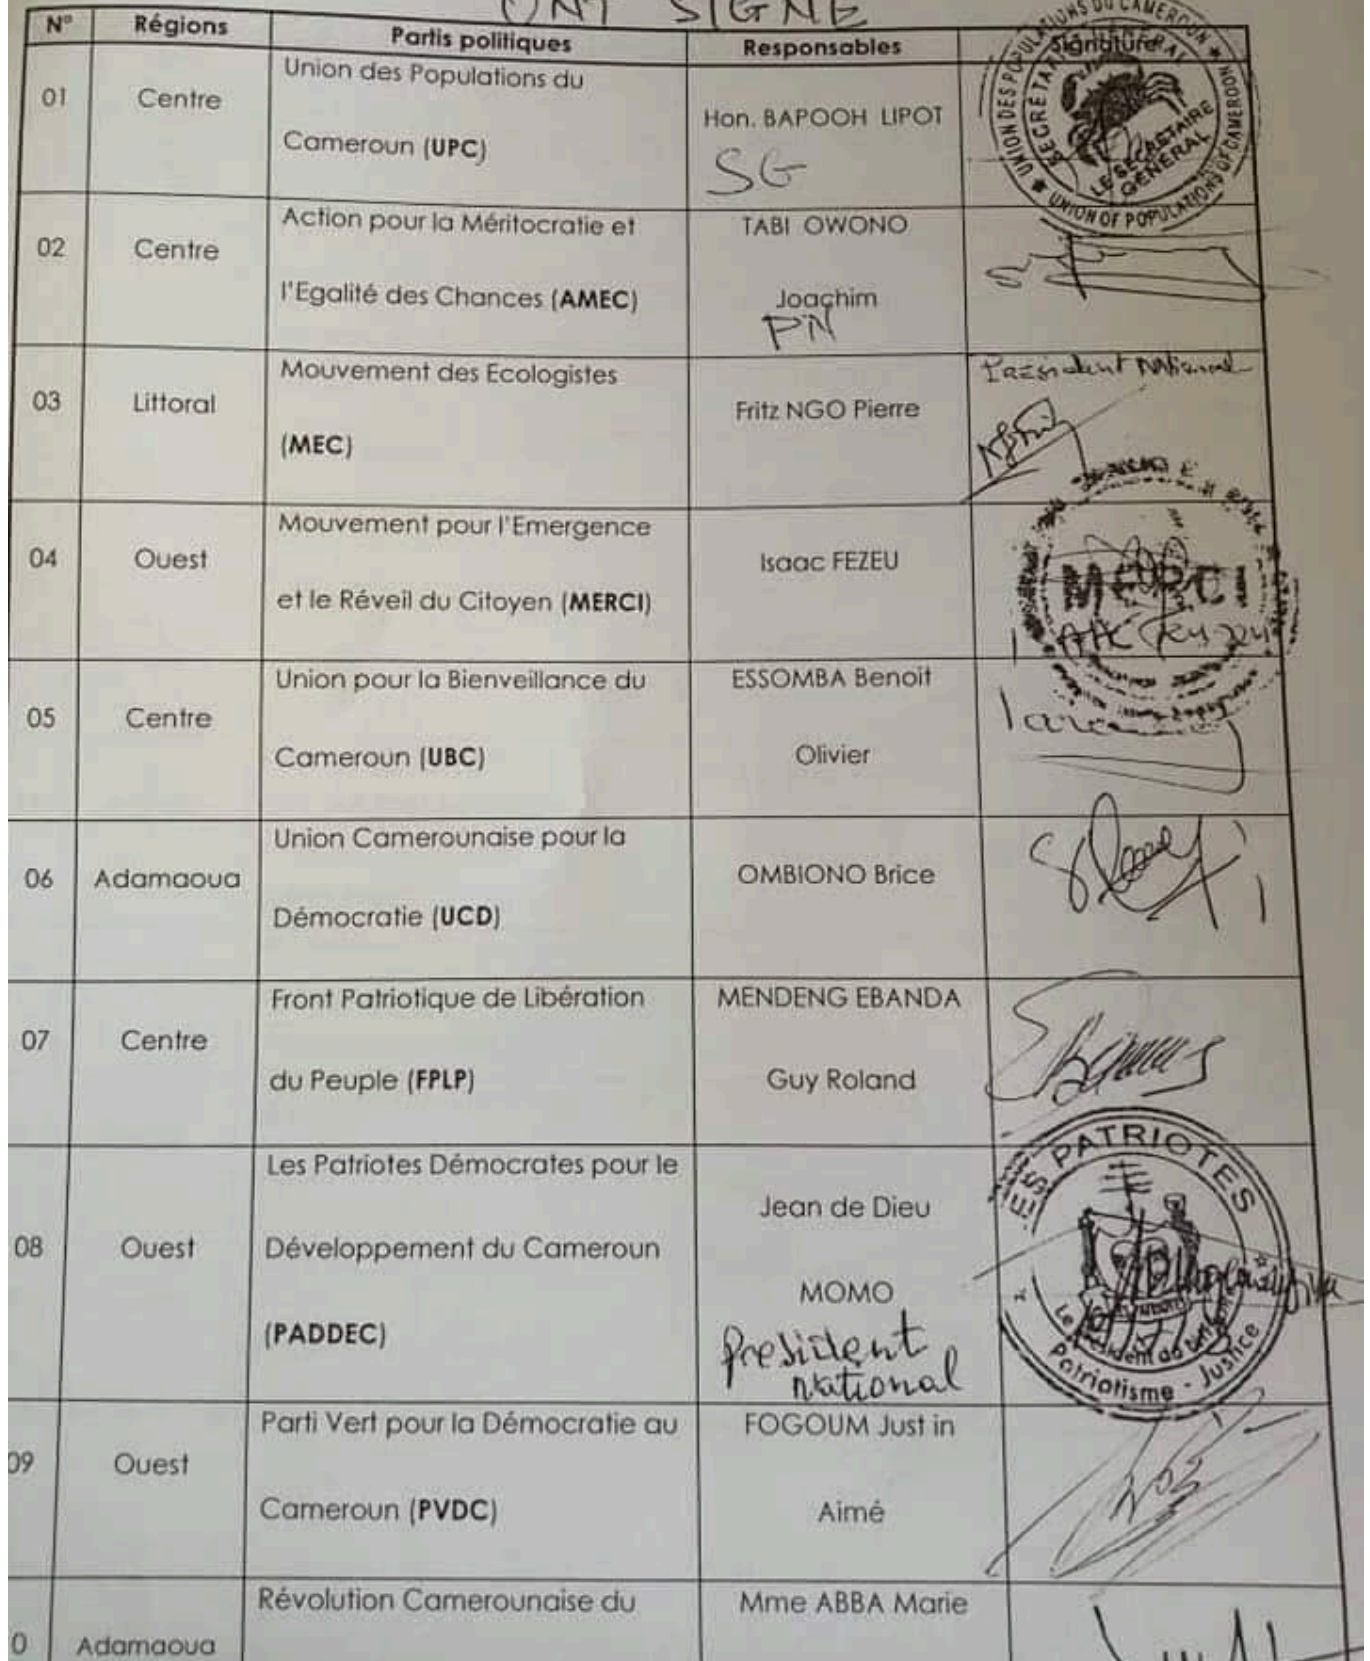 ONT SIGNE
N° Régions Partis politiques Responsables Signature
01 Centre Union des Populations du
Cameroun (UPC) Hon. BAPOOH LIPOT
SG
UNION DES POPULATIONS DU CAMEROUN
SECRETARIAT GENERAL
LE SECRETAIRE
GENERAL
UNION OF POPULATIONS OF CAMEROON
02 Centre Action pour la Méritocratie et
l'Egalité des Chances (AMEC) TABI OWONO
Joachim
PN
03 Littoral Mouvement des Ecologistes
(MEC) Fritz NGO Pierre
President National
04 Ouest Mouvement pour l'Emergence
et le Réveil du Citoyen (MERCI) Isaac FEZEU
MERCI
05 Centre Union pour la Bienveillance du
Cameroun (UBC) ESSOMBA Benoit
Olivier
06 Adamaoua Union Camerounaise pour la
Démocratie (UCD) OMBIONO Brice
07 Centre Front Patriotique de Libération
du Peuple (FPLP) MENDENG EBANDA
Guy Roland
08 Ouest Les Patriotes Démocrates pour le
Développement du Cameroun
(PADDEC) Jean de Dieu
MOMO
President
National
LES PATRIOTES
Patriotisme - Justice
09 Ouest Parti Vert pour la Démocratie au
Cameroun (PVDC) FOGOUM Just in
Aimé
0 Adamaoua Révolution Camerounaise du
Mme ABBA Marie